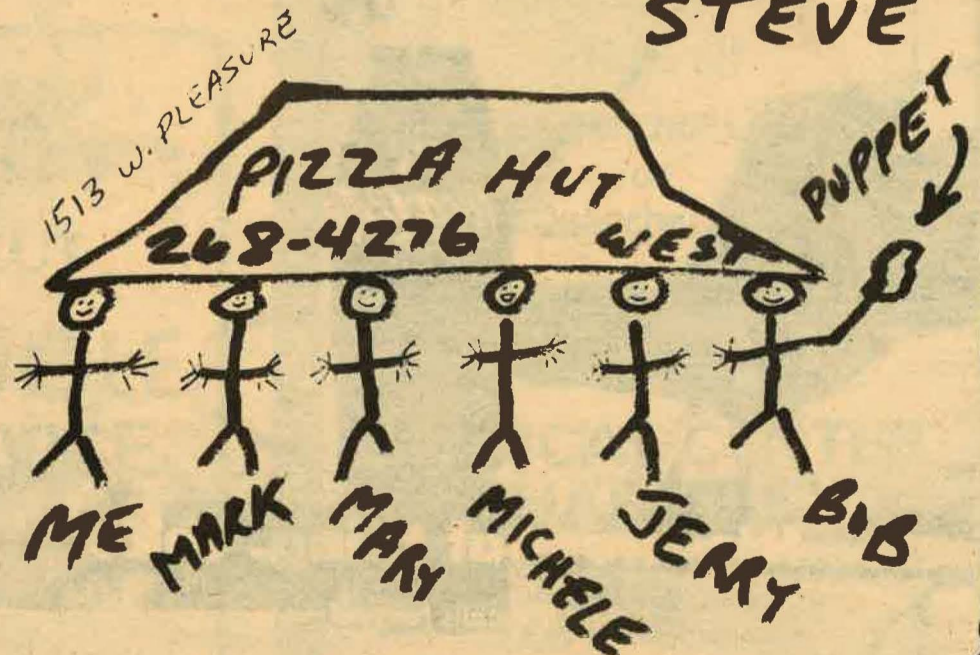 STEVE
1513 W. PLEASURE
PIZZA HUT
268-4276 WEST
PUPPET
ME MARK MARY MICHELE JERRY BOB